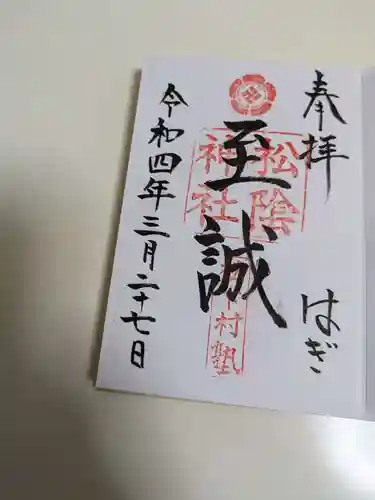 奉拝
はぎ
松陰
神社
至誠
村塾
令和四年三月二十七日